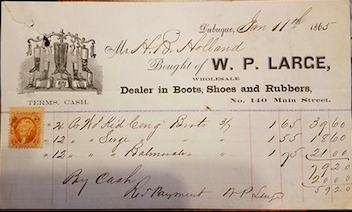 Dubuque, Jan 11th 1865
Mr H. B. Holland
Bought of W. P. LARGE,
WHOLESALE
Dealer in Boots, Shoes and Rubbers,
TERMS, CASH. No. 140 Main Street.
24 Kid Cong Boots 165 3960
" 12 " Serge " " 155 1860
" 12 " " Balmorals " 175 21.00
7920
By Cash 2000
Rec Payment W P Large 5920